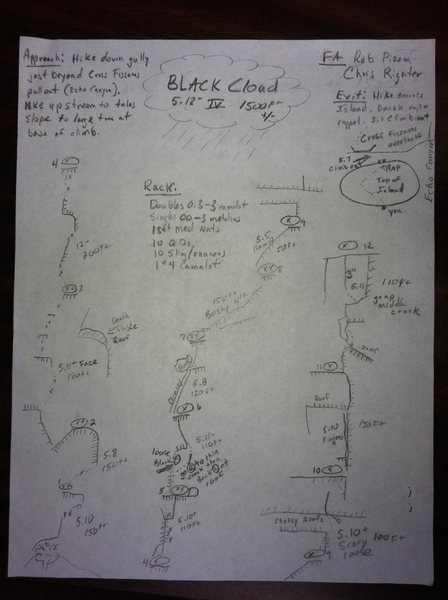 Approach: Hike down gully
just beyond Cross Fissures
pullout (Echo Canyon).
Hike upstream to talus
slope to large tree at
base of climb.
BLACK Cloud
5.12- IV 1500ft
+/-
FA Rob Pizem
Chris Righter
Exit: Hike across
Island. Double rope
rappel. 5.7 climb out
Cross Fissures
overlook
5.7
climb out
xx
Rap
Top of
Island
you
Echo Canyon
Rack:
Doubles 0.3-3 camalot
Singles 00-3 metolius
1 set med Nuts
10 QD's
10 Sling/runners
1 #4 Camalot
4 xx
12-
200ft
xx 3
Death
Spike
Roof
5.11+ Face
140ft
xx 2
5.8
150ft
5.10
150ft
xx 9
5.5
Ramp
50ft
xx 8
150ft
Bushy 4th
7 xx
Chimney
5.8
120ft
xx 6
5.11-
110ft
loose
Block
thin
crack then
Back
roof
5 xx
5.10+
110ft
4 xx
x 12
8"
5.11
110ft
gump
middle
crack
Ramp
11 x
Roof
5.10
Fingers
150ft
10 x
Chossy Roofs
5.10+
Scary
loose
100ft
9